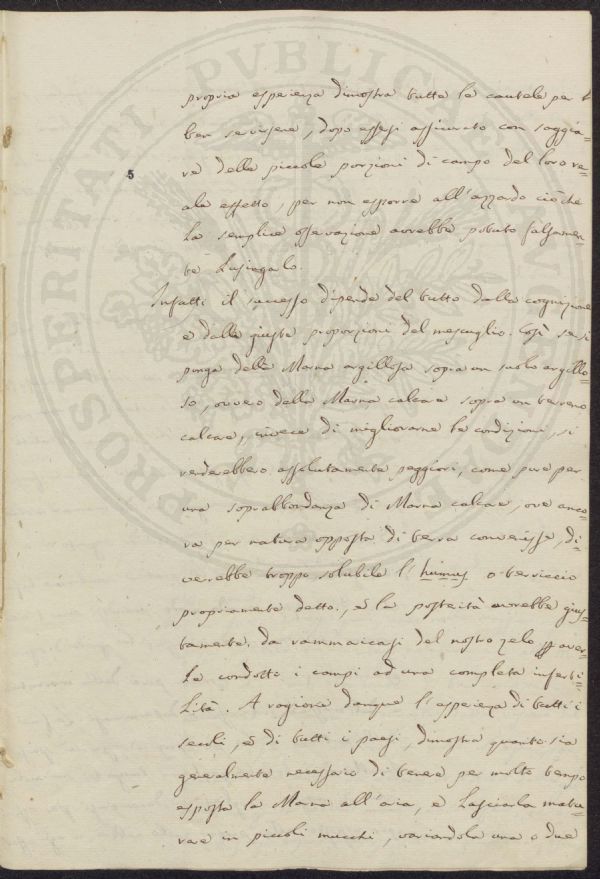 propria esperienza dimostra tutte le cautele per
ben servirsene, dopo essersi assicurato con saggia=
5
re delle piccole porzioni di campo del loro re=
ale effetto, per non esporre all'azzardo ciò che
la semplice osservazione avrebbe potuto falsamen=
te lusingarlo.
Infatti il successo dipende del tutto dalla cognizione
e dalle giuste proporzioni del mescuglio. Così se si
ponga della Marna argillosa sopra un suolo argillo=
so, ovvero della Marna calcare sopra un terreno
calcare, invece di migliorarne le condizioni, si
renderebbero assolutamente peggiori, come pure per
una soprabbondanza di Marna calcare, ove anco=
ra per natura opposta di terra convenisse, di=
verrebbe troppo solubile l'humus o terriccio
propriamente detto, e la posterità avrebbe gius=
tamente da rammaricarsi del nostro zelo per aver=
le condotto i campi ad una completa inferti=
lità. A ragione dunque l'esperienza di tutti i
secoli, e di tutti i paesi, dimostra quanto sia
generalmente necessario di tenere per molto tempo
esposta la Marna all'aria, e lasciarla matu=
rare in piccoli mucchi, variandola una o due
PROSPERITATI PVBLICAE